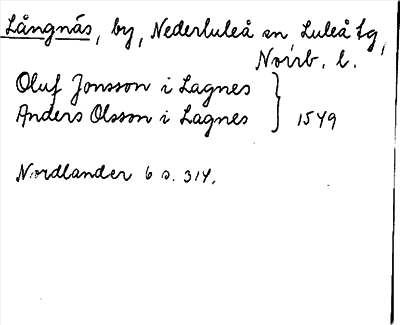 Långnäs, by, Nederluleå sn Luleå tg,
Norrb. l.
Oluf Jonsson i Lagnes
Anders Olsson i Lagnes } 1549
Nordlander 6 s. 314.